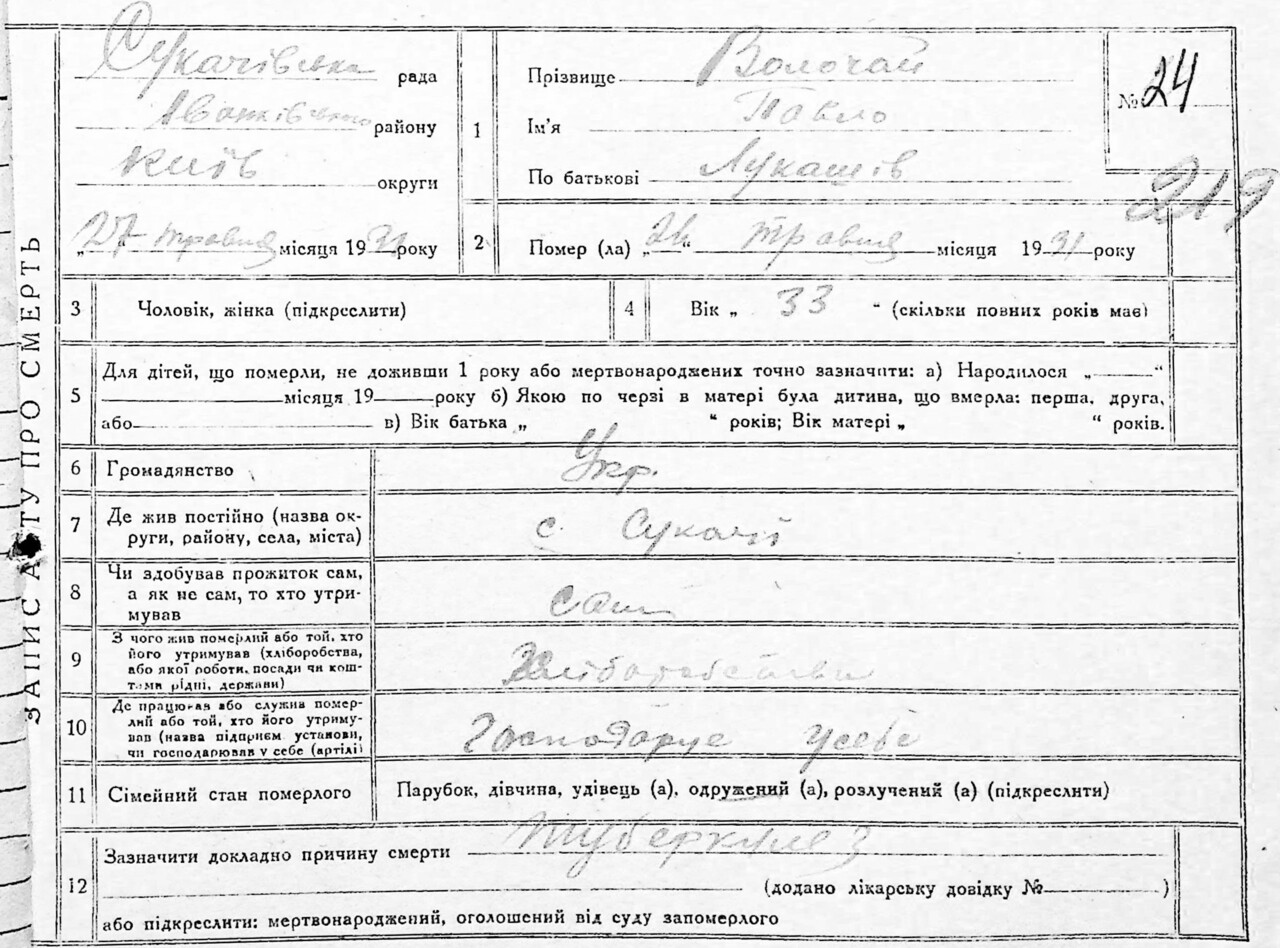 ЗАПИС АКТУ ПРО СМЕРТЬ
Сукачівська рада
району
Київ округи
„27“ травня місяця 1931 року
1
Прізвище Волочай
Ім’я Павло
По батькові Лукашів
№ 24
219
2
Помер (ла) „26“ травня місяця 1931 року
3
Чоловік, жінка (підкреслити)
4
Вік „ 33 “ (скільки повних років має)
5
Для дітей, що померли, не доживши 1 року або мертвонароджених точно зазначити: а) Народилося „ “
місяця 19 року б) Якою по черзі в матері була дитина, що вмерла: перша, друга,
або в) Вік батька „ “ років; Вік матері „ “ років.
6
Громадянство
Укр.
7
Де жив постійно (назва ок-
руги, району, села, міста)
с. Сукачі
8
Чи здобував прожиток сам,
а як не сам, то хто утри-
мував
сам
9
З чого жив померлий або той, хто
його утримував (хліборобства,
або якої роботи, посади чи кош-
тами рідні, держави)
Хліборобства
10
Де працював або служив помер-
лий або той, хто його утриму-
вав (назва підприєм. установи,
чи господарював у себе (артілі)
Господарує усебе
11
Сімейний стан померлого
Парубок, дівчина, удівець (а), одружений (а), розлучений (а) (підкреслити)
12
Зазначити докладно причину смерти туберкульоз
(додано лікарську довідку № )
або підкреслити: мертвонароджений, оголошений від суду запомерлого